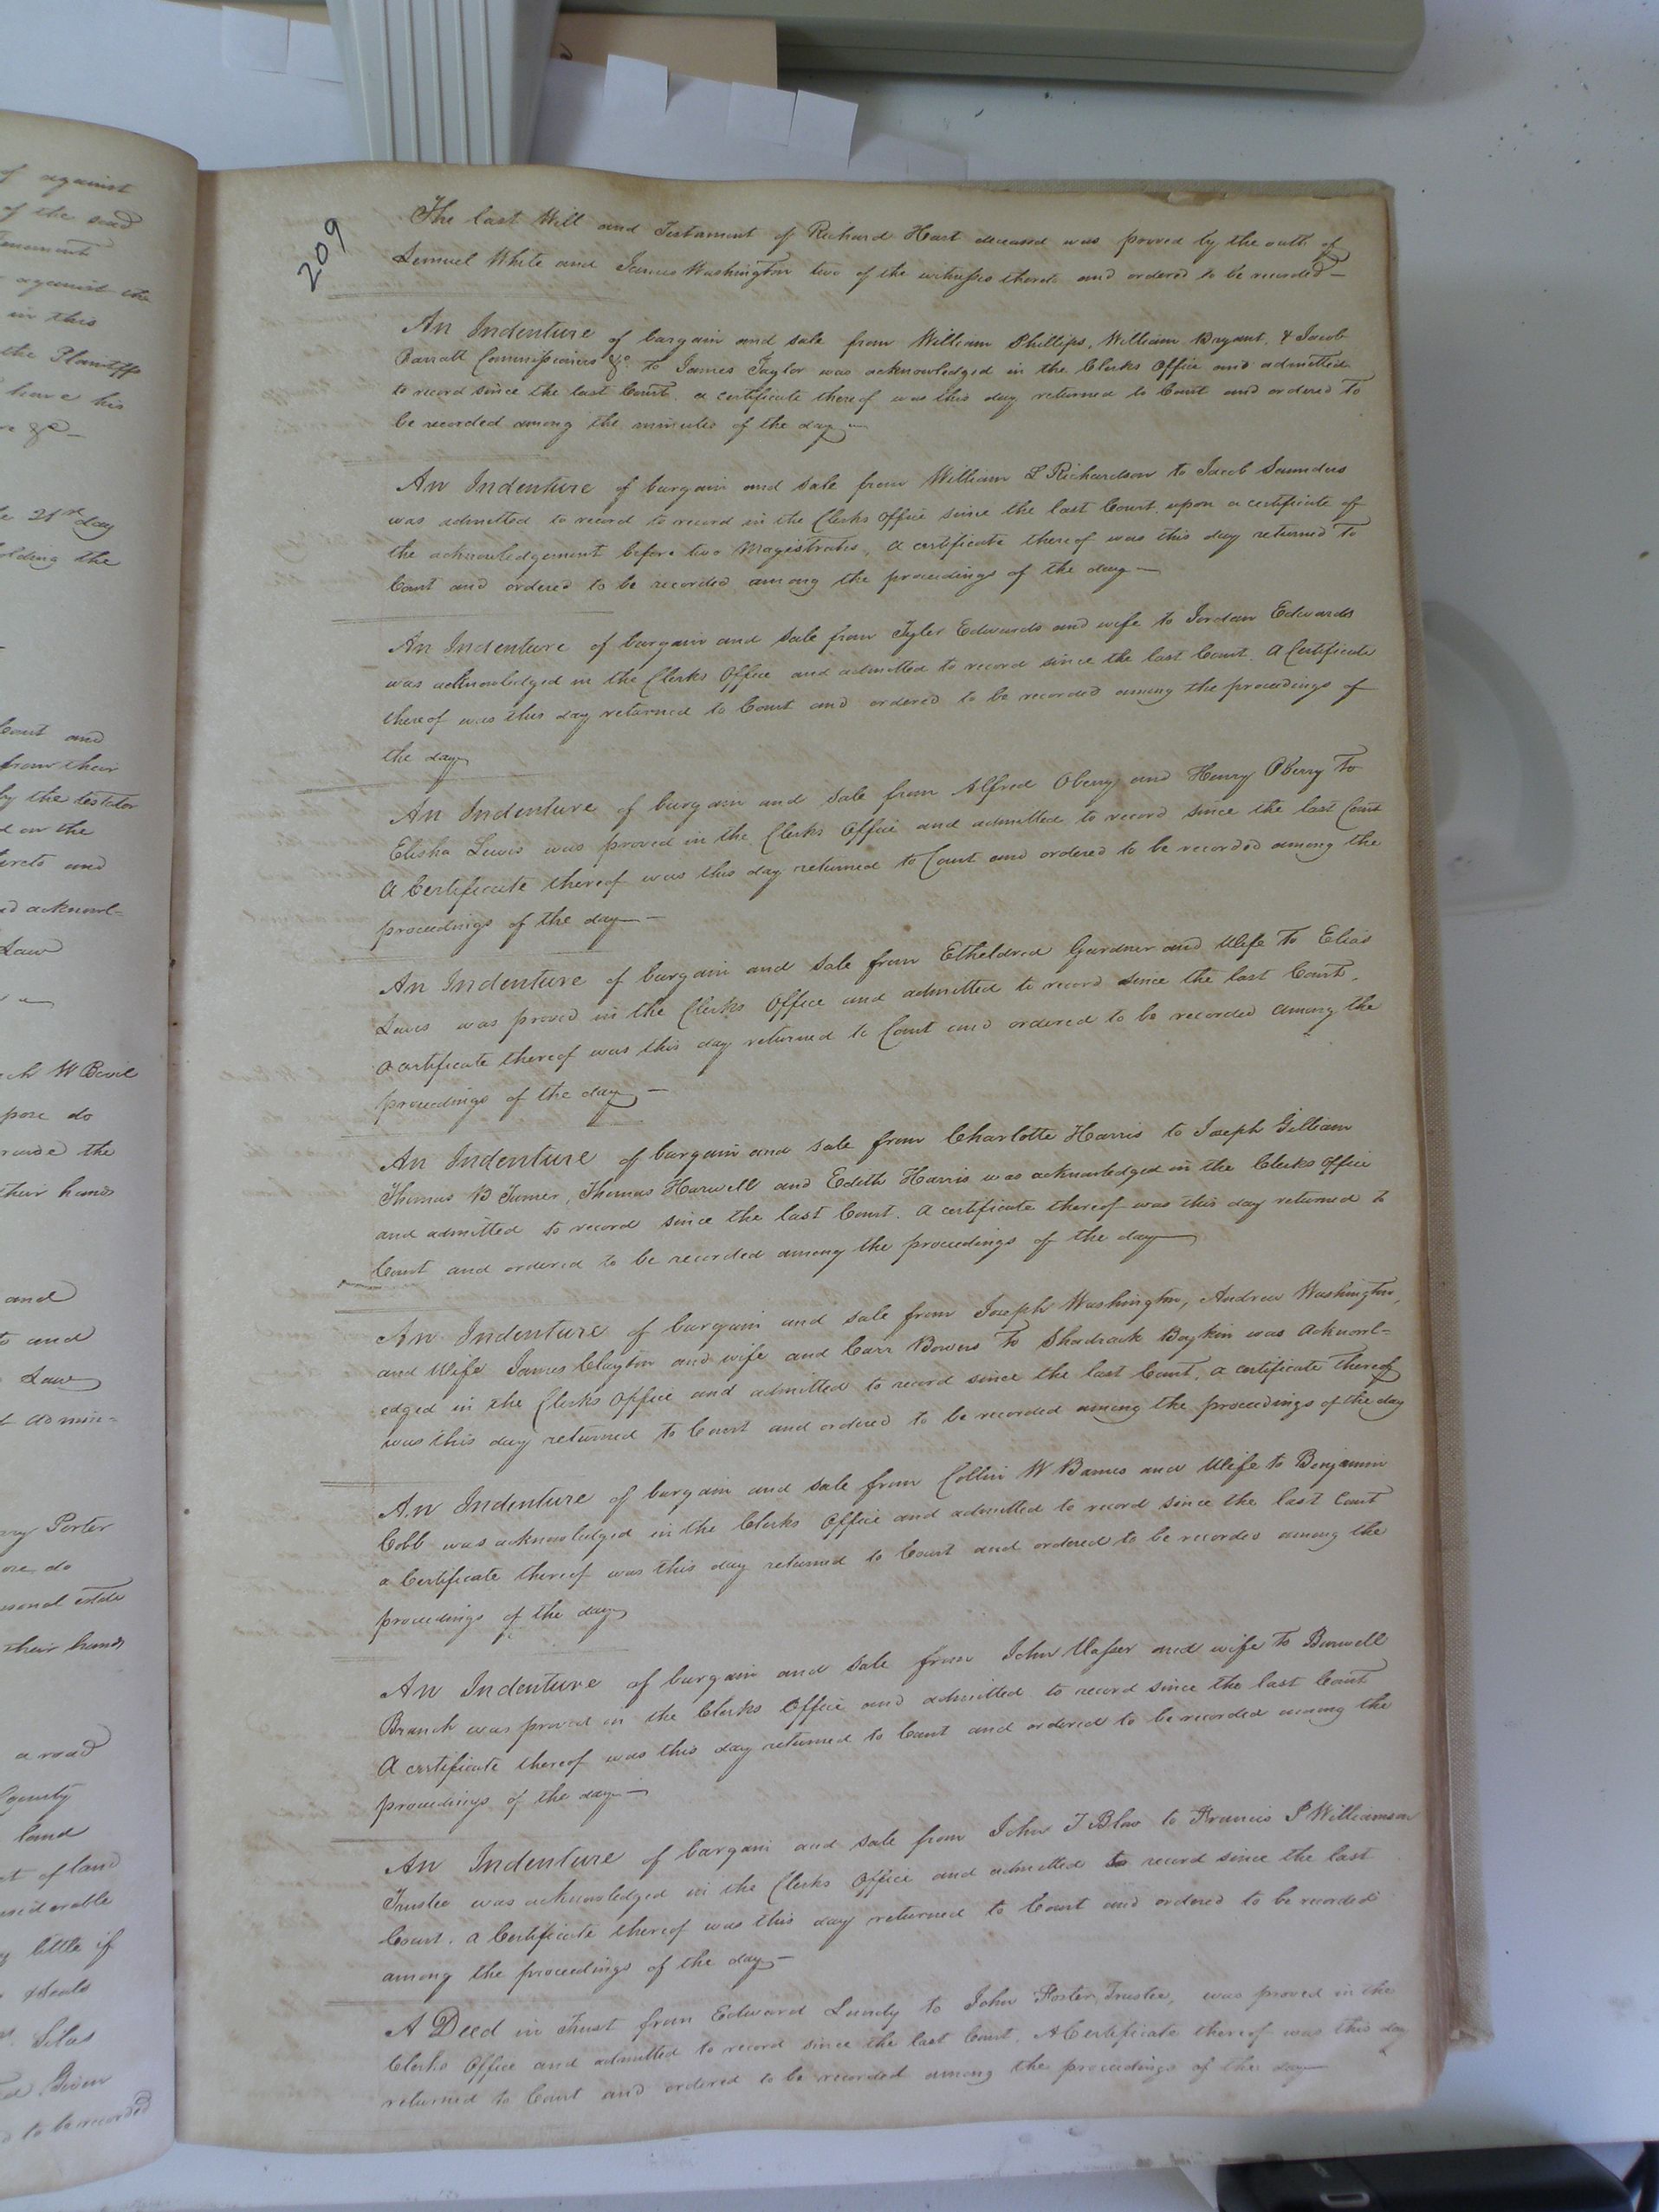 of against
of the said
Tenement
against the
in this
the Plantiff
have his
&c
21st day
olding the
Court and
from their
by the testator
on the
ereto and
acknowl=
Law
W Bevil
pose do
the
their hands
and
and
Law
admin=
Porter
do
estate
their hands
a road
County
land
of land
considerable
little if
Silas
Given
to be recorded
209
The last Will and Testament of Richard Hart deceased was proved by the oath of
Lemuel White and James Washington two of the witnesses thereto and ordered to be recorded—
An Indenture of bargain and sale from William Phillips, William Bryant, & Jacob
Barratt Commissioners &c to James Taylor was acknowledged in the Clerks Office and admitted
to record since the last Court. a certificate thereof was this day returned to Court and ordered to
be recorded among the minutes of the day—
An Indenture of bargain and sale from William L Richardson to Jacob Saunders
was admitted to record to record in the Clerks Office since the last Court upon a certificate of
the acknowledgement before two Magistrates, a certificate thereof was this day returned to
Court and ordered to be recorded among the proceedings of the day—
An Indenture of bargain and sale from Tyler Edwards and wife to Jordan Edwards
was acknowledged in the Clerks Office and admitted to record since the last Court. A Certificate
thereof was this day returned to Court and ordered to be recorded among the proceedings of
the day
An Indenture of bargain and sale from Alfred Oberry and Henry Oberry to
Elisha Lewis was proved in the Clerks Office and admitted to record since the last Court
A Certificate thereof was this day returned to Court and ordered to be recorded among the
proceedings of the day—
An Indenture of bargain and sale from Etheldred Gardner and Wife to Elias
Lewis was proved in the Clerks Office and admitted to record since the last Court.
a certificate thereof was this day returned to Court and ordered to be recorded among the
proceedings of the day—
An Indenture of bargain and sale from Charlotte Harris to Joseph Gilliam
Thomas B Turner, Thomas Harwell and Edith Harris was acknowledged in the Clerks Office
and admitted to record since the last Court. A certificate thereof was this day returned to
Court and ordered to be recorded among the proceedings of the day
An Indenture of bargain and sale from Joseph Washington, Andrew Washington,
and Wife James Clayton and wife and Carr Bowers to Shadrack Boykin was acknowl=
edged in the Clerks Office and admitted to record since the last Court. a certificate thereof
was this day returned to Court and ordered to be recorded among the proceedings of the day
An Indenture of bargain and sale from Collin W Barnes and Wife to Benjamin
Cobb was acknowledged in the Clerks Office and admitted to record since the last Court
a Certificate thereof was this day returned to Court and ordered to be recorded among the
proceedings of the day
An Indenture of bargain and sale from John Vasser and wife to Burwell
Branch was proved in the Clerks Office and admitted to record since the last Court
A certificate thereof was this day returned to Court and ordered to be recorded among the
proceedings of the day—
An Indenture of bargain and sale from John T Blow to Francis P Williamson
Trustee was acknowledged in the Clerks Office and admitted to record since the last
Court. a Certificate thereof was this day returned to Court and ordered to be recorded
among the proceedings of the day—
A Deed in Trust from Edward Lundy to John Foster, Trustee, was proved in the
Clerks Office and admitted to record since the last Court. A Certificate thereof was this day
returned to Court and ordered to be recorded among the proceedings of the day—